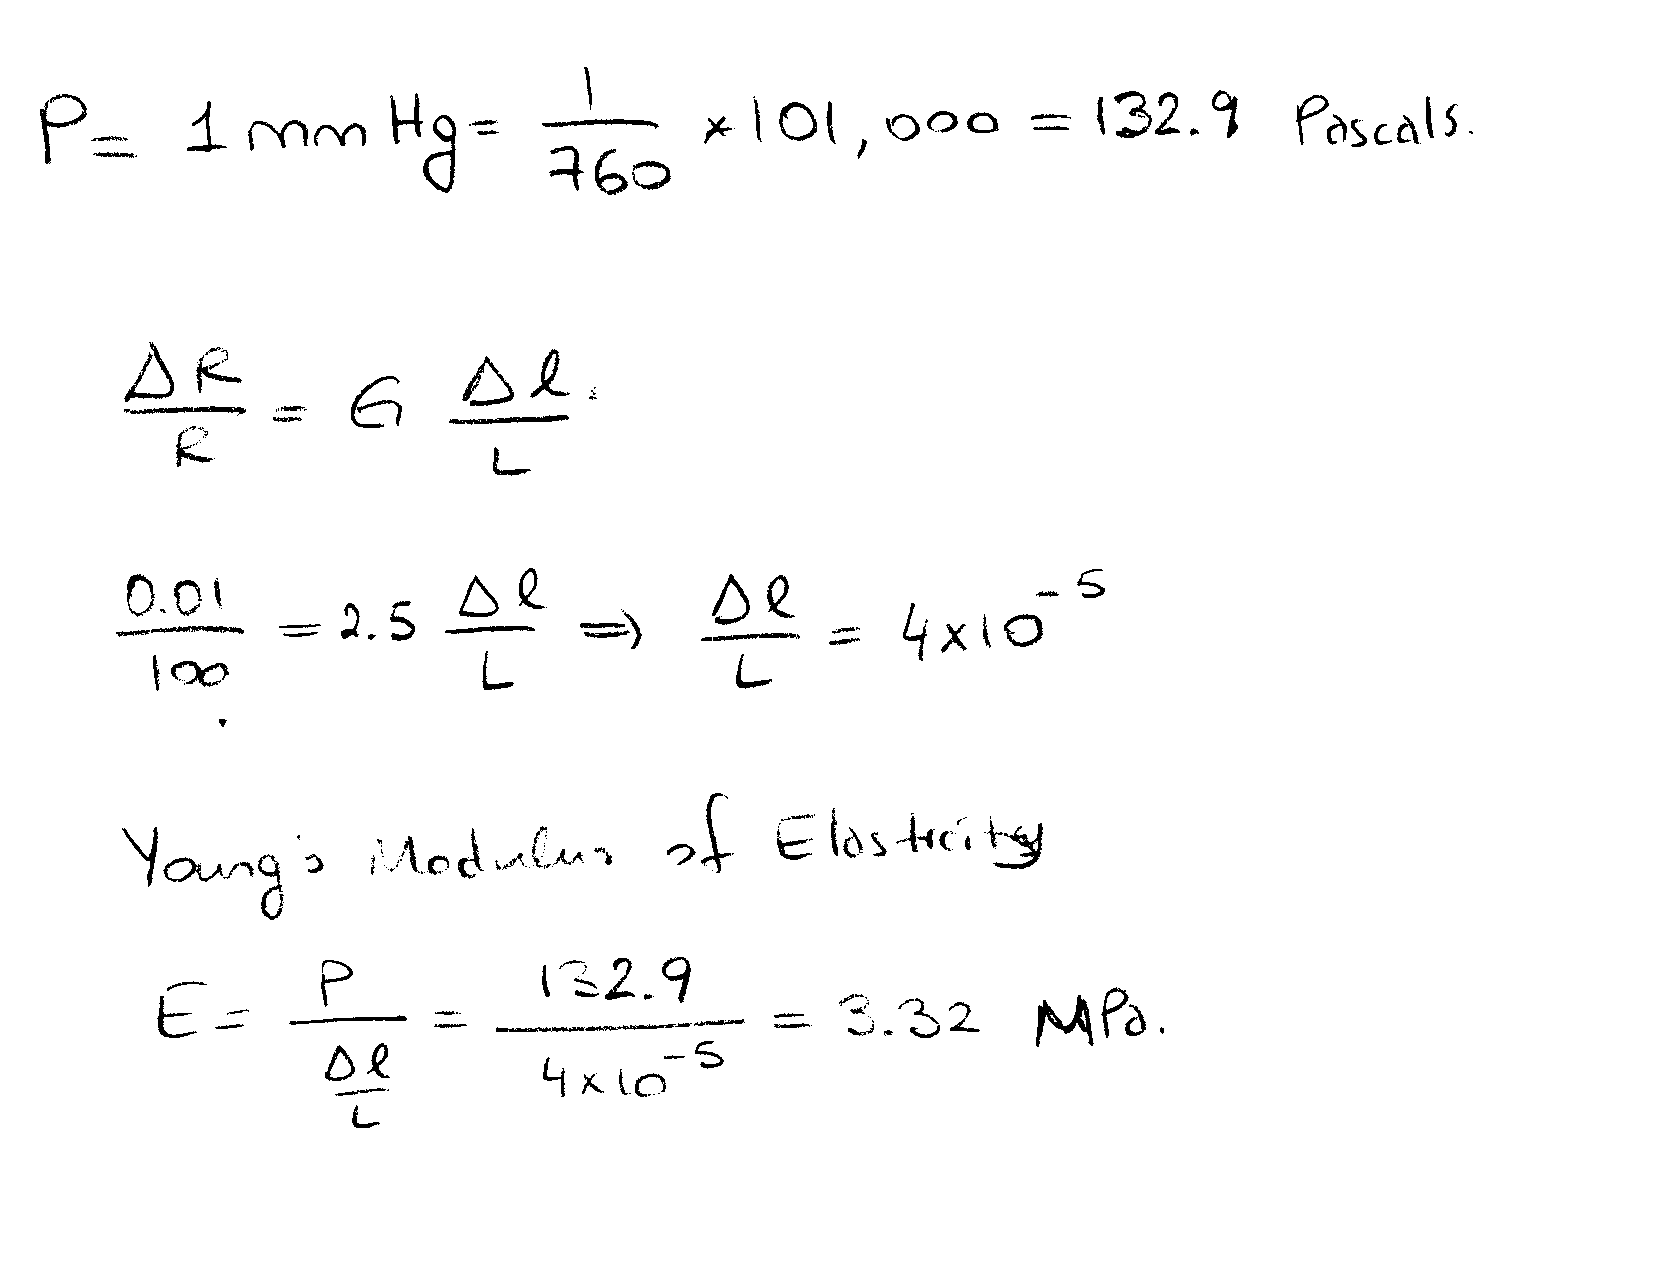 P = 1 mm Hg = 1/760 × 101,000 = 132.9 Pascals.
ΔR/R = G Δl/L
0.01/100 = 2.5 Δl/L ⇒ Δl/L = 4×10^-5
Young's Modulus of Elasticity
E = P/(Δl/L) = 132.9/(4×10^-5) = 3.32 MPa.